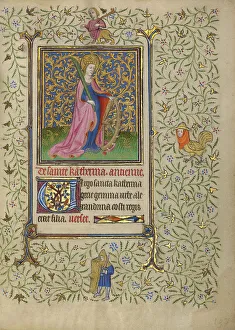 De sainte katherine. antienne.
Virgo sancta katherina
grecie gemma urbe ale
xandrina costi regis
erat filia. verset.